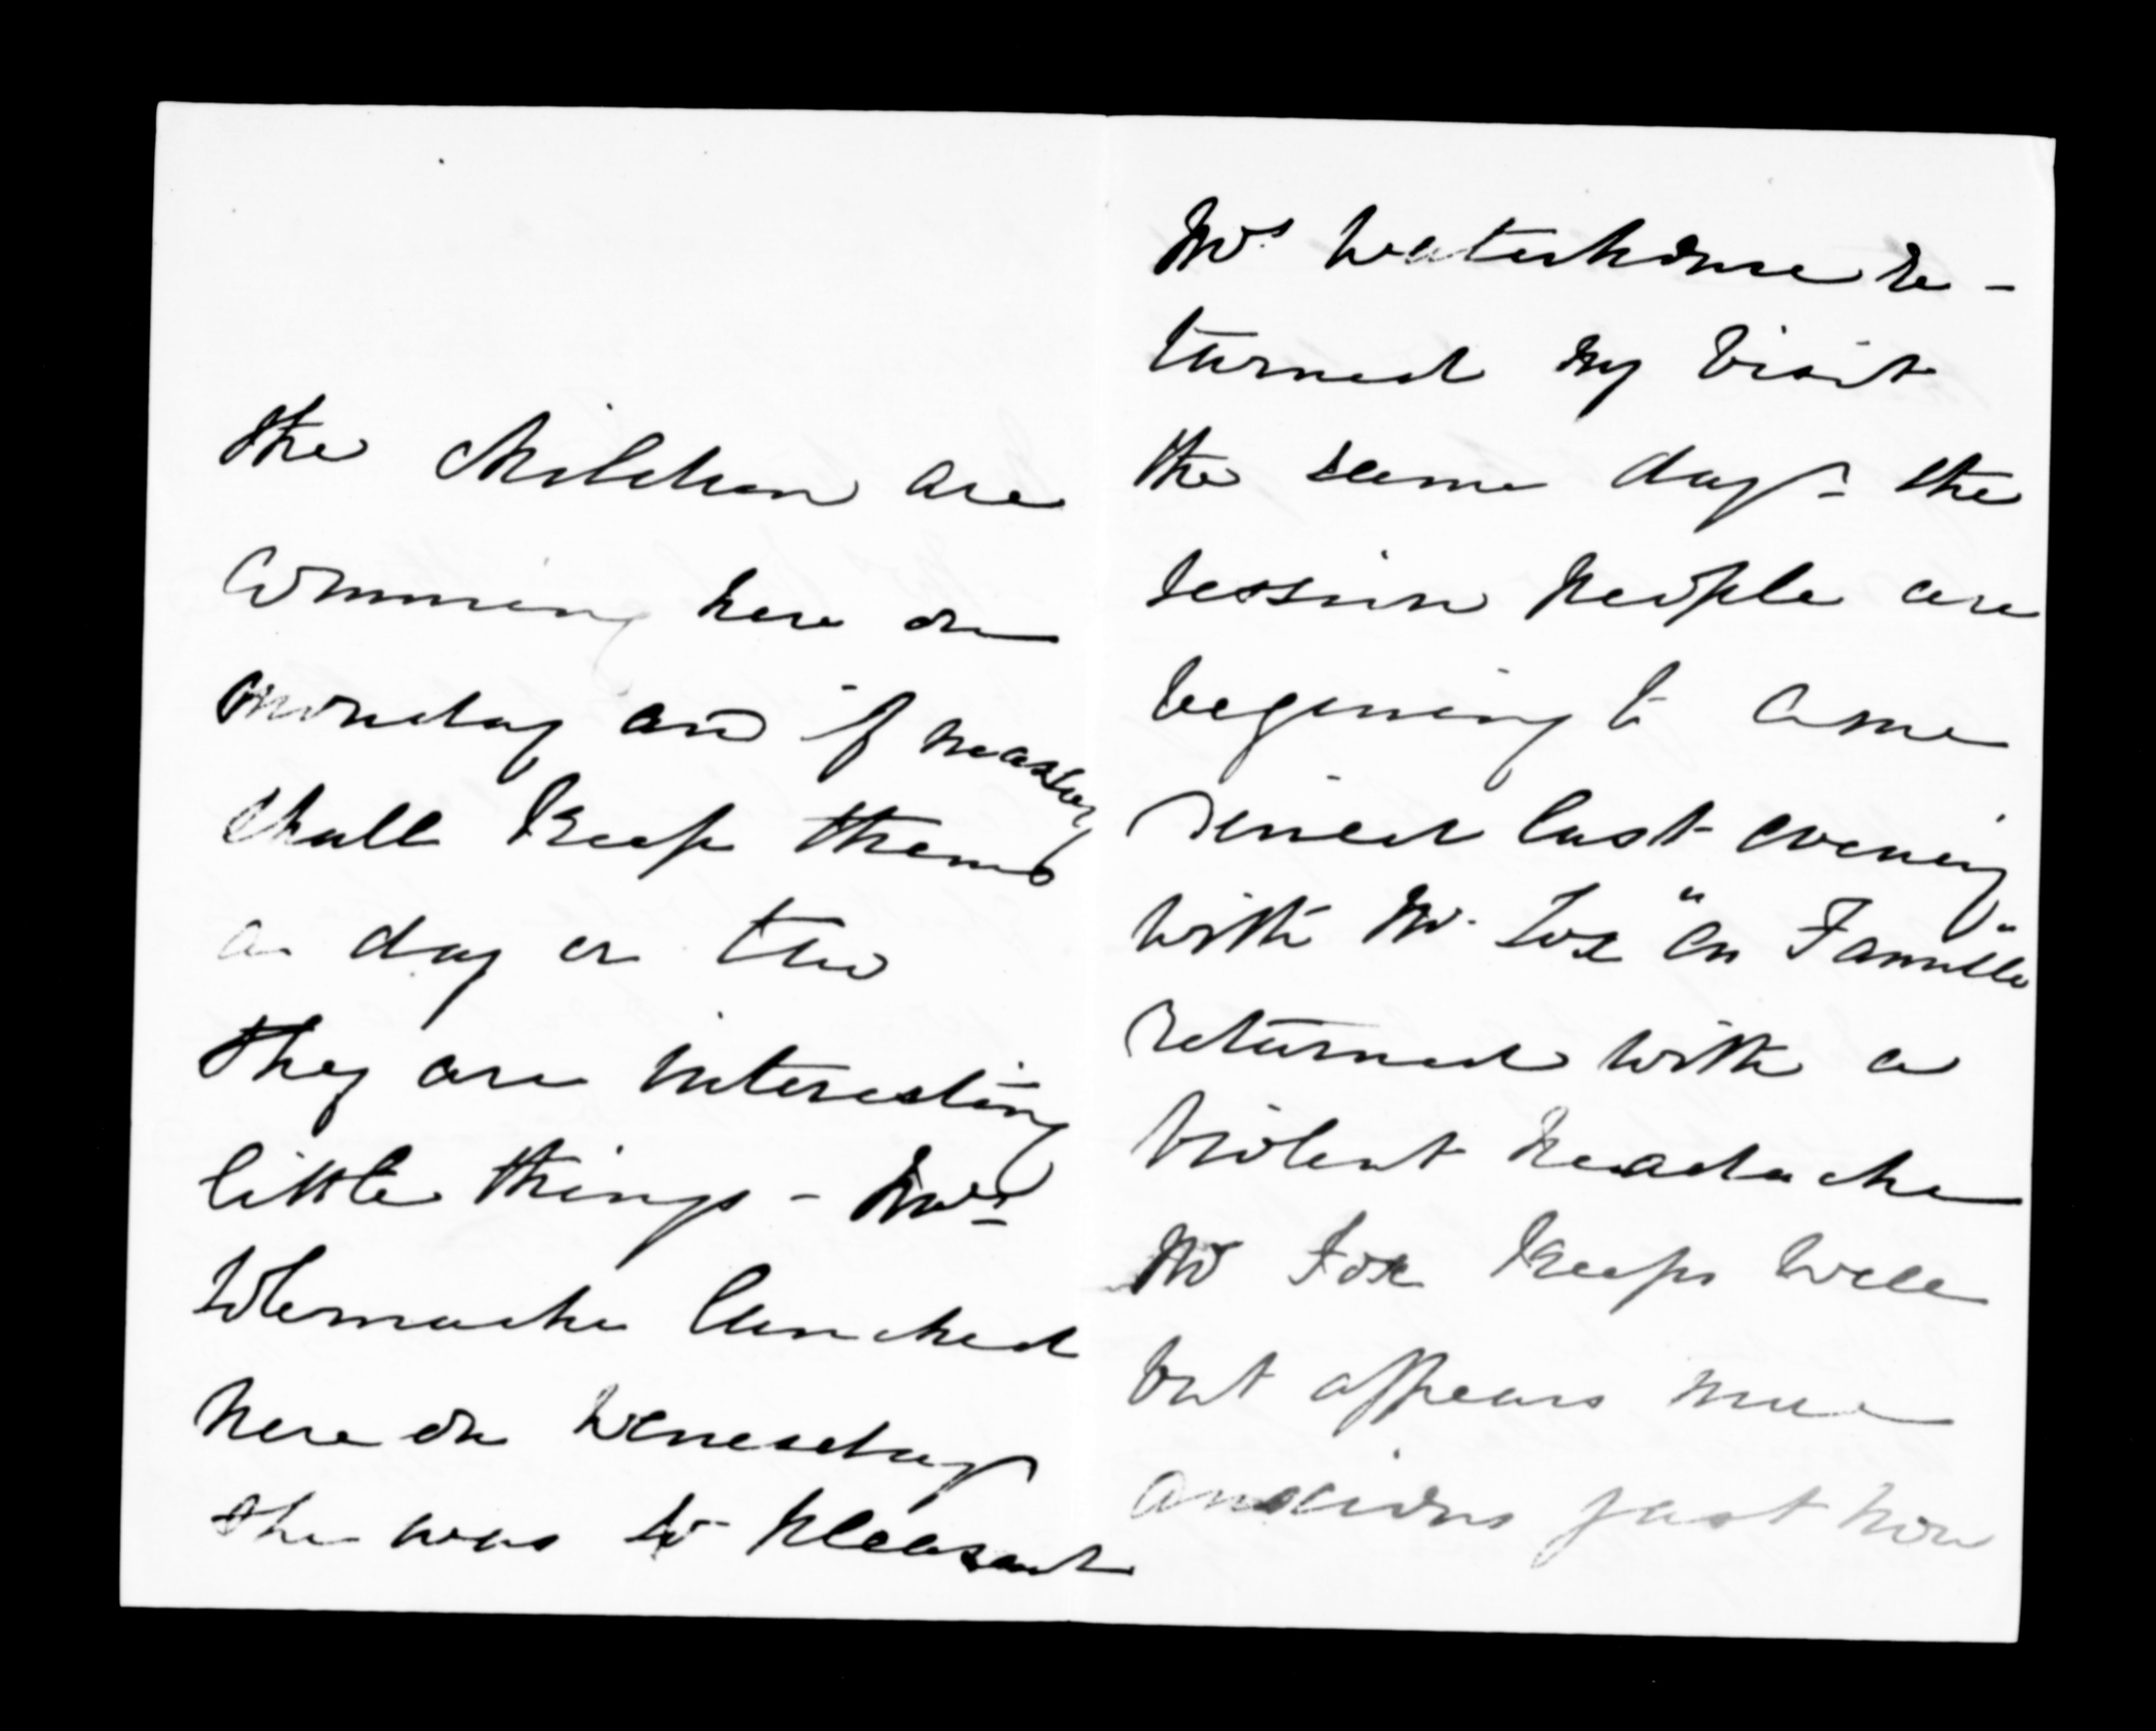 the children are
comming here on
monday and if measley
shall keep them
a day or two
they are interesting
little things - Mrs
Tolemache lunched
here on Wenesday
she was so pleasant
Mrs Waterhouse re-
turned my visit
the same day - the
session people are
begining to come
Dined last evening
with Mr Fox "En Famille"
returned with a
violent headache
Mr Fox keeps well
but appears
anxious just now